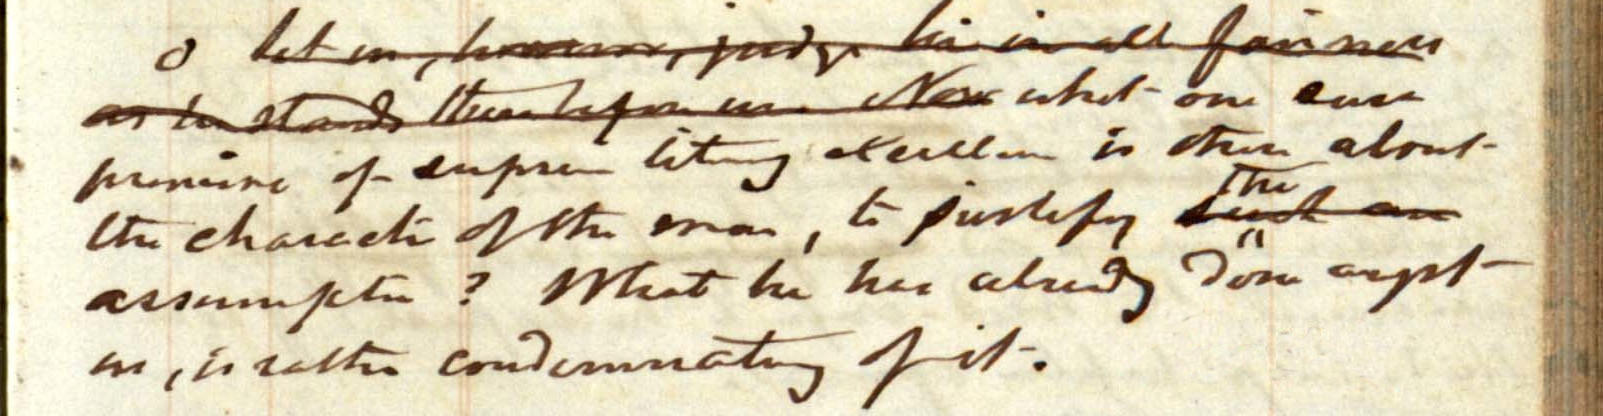 o let us, however, judge his in all fairness
as he stands there before us. Now what one sure
promise of supreme literary excellence is there about
the character of the man, to justify such an the
assumption? What he has already done amgst
us, is rather condemnatory of it.